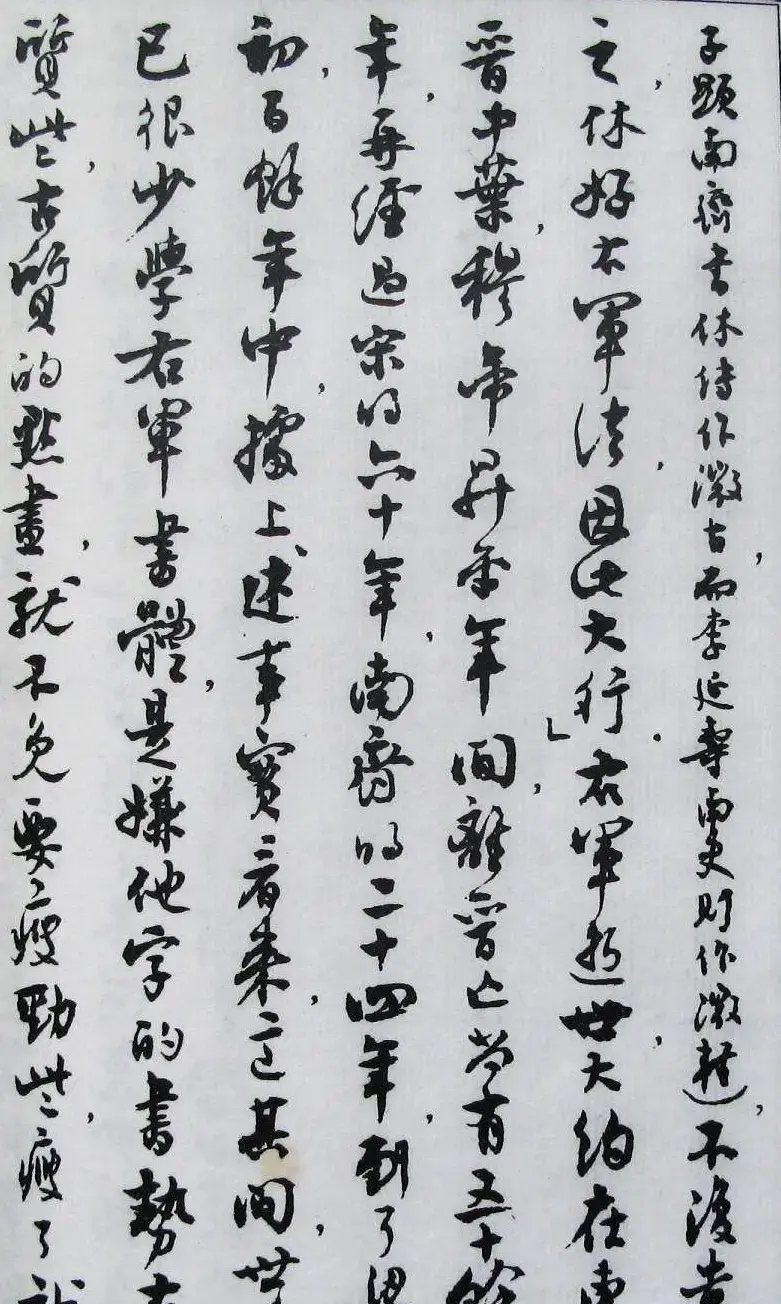 子顯南齊書休傳作微古而李延壽南史則作微輕）不復貴
之，休好右軍法，因此大行。」右軍逝世，大約在東
晉中葉，穆帝昇平年間，離晉亡尚有五十餘
年，再經過宋的六十年，南齊的二十四年，到了梁
初，百餘年中，據上述事實看來，這其間，世
已很少學右軍書體，是嫌他字的書勢古
質些，古質的點畫，就不免要瘦勁些，瘦了就